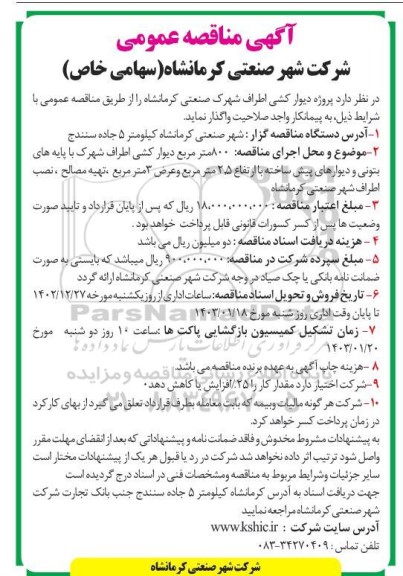 آگهی مناقصه عمومی
شرکت شهر صنعتی کرمانشاه(سهامی خاص)
در نظر دارد پروژه دیوار کشی اطراف شهرک صنعتی کرمانشاه را از طریق مناقصه عمومی با
شرایط ذیل، به پیمانکار واجد صلاحیت واگذار نماید.
۱-آدرس دستگاه مناقصه گزار : شهر صنعتی کرمانشاه کیلومتر ۵ جاده سنندج
۲-موضوع و محل اجرای مناقصه: ۸۰۰متر مربع دیوار کشی اطراف شهرک با پایه های
بتونی و دیوارهای پیش ساخته با ارتفاع ۲.۵ متر مربع وعرض ۳متر مربع ،تهیه مصالح ، نصب
اطراف شهر صنعتی کرمانشاه
۳- مبلغ اعتبار مناقصه : ۱۸,۰۰۰,۰۰۰,۰۰۰ ریال که پس از پایان قرارداد و تایید صورت
وضعیت ها پس از کسر کسورات قانونی قابل پرداخت خواهد بود .
۴ - هزینه دریافت اسناد مناقصه : دو میلیون ریال می باشد
۵- مبلغ سپرده شرکت در مناقصه: ۹۰۰,۰۰۰,۰۰۰ ریال میباشد که بایستی به صورت
ضمانت نامه بانکی یا چک صیاد در وجه شرکت شهر صنعتی کرمانشاه ارائه گردد
۶- تاریخ فروش و تحویل اسناد مناقصه: ساعات اداری از روز یکشنبه مورخه ۱۴۰۲/۱۲/۲۷
تا پایان وقت اداری روز شنبه مورخ ۱۴۰۳/۰۱/۱۸
۷- زمان تشکیل کمیسیون بازگشایی پاکت ها :ساعت ۱۰ روز دو شنبه مورخ
۱۴۰۳/۰۱/۲۰
۸ -هزینه چاپ آگهی به عهده برنده مناقصه می باشد
۹-شرکت اختیار دارد مقدار کار را ۲۵٪ افزایش یا کاهش دهد.
۱۰- شرکت هر گونه مالیات وبیمه که بابت معامله بطرف قرارداد تعلق می گیرد از بهای کار کرد
در زمان پرداخت کسر خواهد کرد.
به پیشنهادات مشروط مخدوش و فاقد ضمانت نامه و پیشنهاداتی که بعد از انقضای مهلت مقرر
واصل شود ترتیب اثر داده نخواهد شد شرکت در رد یا قبول هر یک از پیشنهادات مختار است
سایر جزئیات وشرایط مربوط به مناقصه ومشخصات فنی در اسناد درج گردیده است
جهت دریافت اسناد به آدرس کرمانشاه کیلومتر ۵ جاده سنندج جنب بانک تجارت شرکت
شهر صنعتی کرمانشاه مراجعه نمایید
آدرس سایت شرکت : www.kshic.ir
تلفن تماس : ۰۸۳-۳۴۲۷۰۴۰۹
شرکت شهر صنعتی کرمانشاه